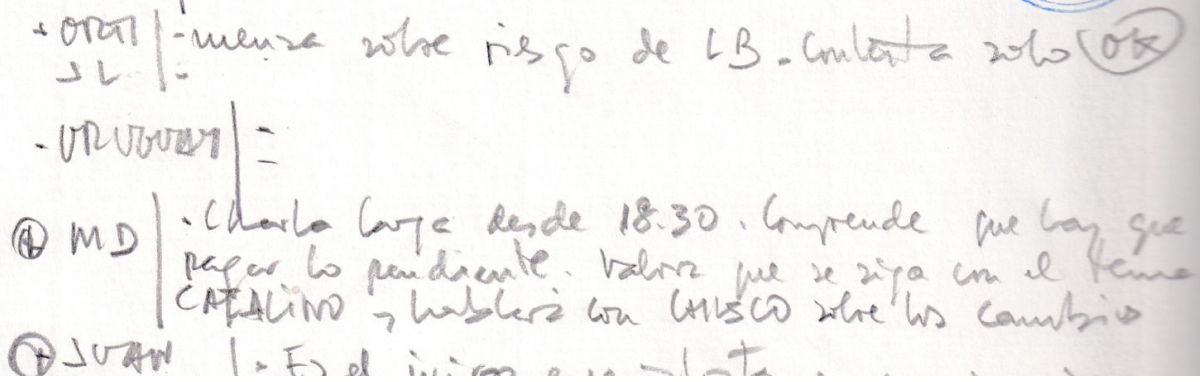 ORTI - mensa sobre riesgo de LB. Contesta solo OK
JL -
- URUGUAY =
MD . Charla larga desde 18.30. Comprende que hay que
pagar lo pendiente. Valora que se siga con el tema
CATALINO → hablará con CHISCO sobre los cambios
JUAN . Es el